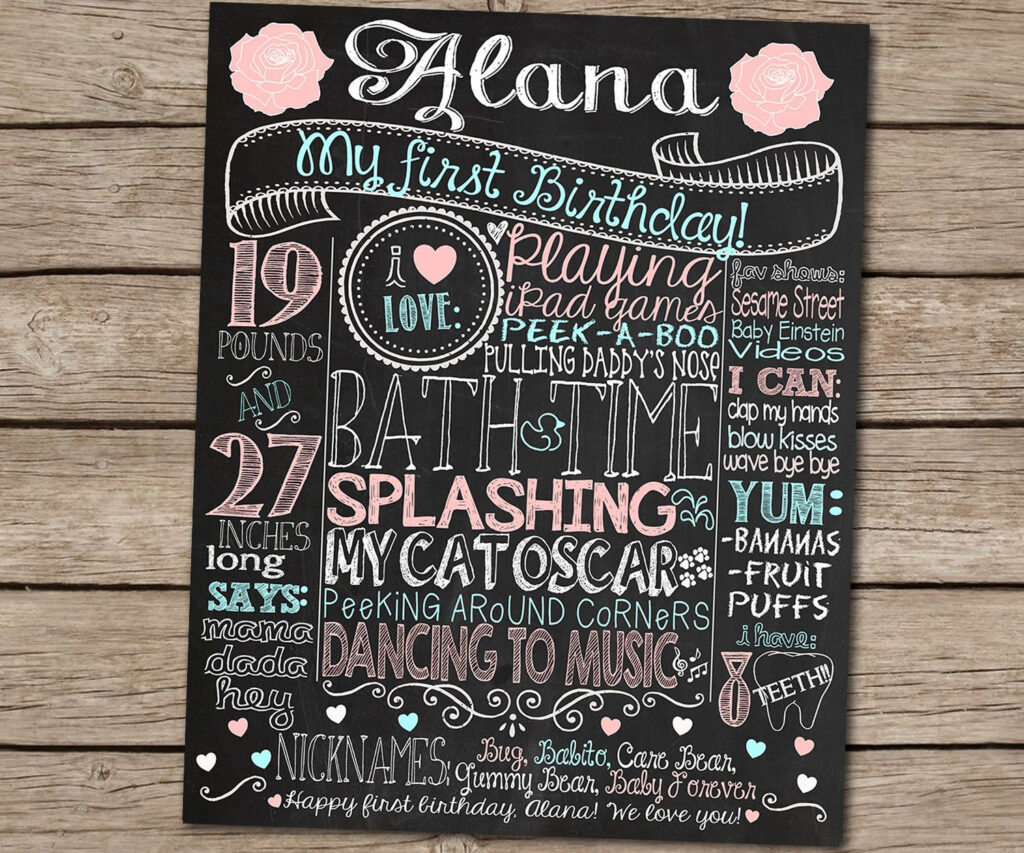 Alana
My first Birthday!
19
POUNDS
AND
27
INCHES
long
SAYS:
mama
dada
hey
i ♥
LOVE:
Playing
iPad games
PEEK-A-BOO
PULLING DADDY'S NOSE
BATH TIME
SPLASHING
MY CAT OSCAR
PEEKING AROUND CORNERS
DANCING TO MUSIC
fav shows:
Sesame Street
Baby Einstein
Videos
I CAN:
clap my hands
blow kisses
wave bye bye
YUM:
-BANANAS
-FRUIT
PUFFS
i have:
8 TEETH!!
NICKNAMES:
Bug, Babito, Care Bear,
Yummy Bear, Baby Forever
Happy first birthday, Alana! We love you!